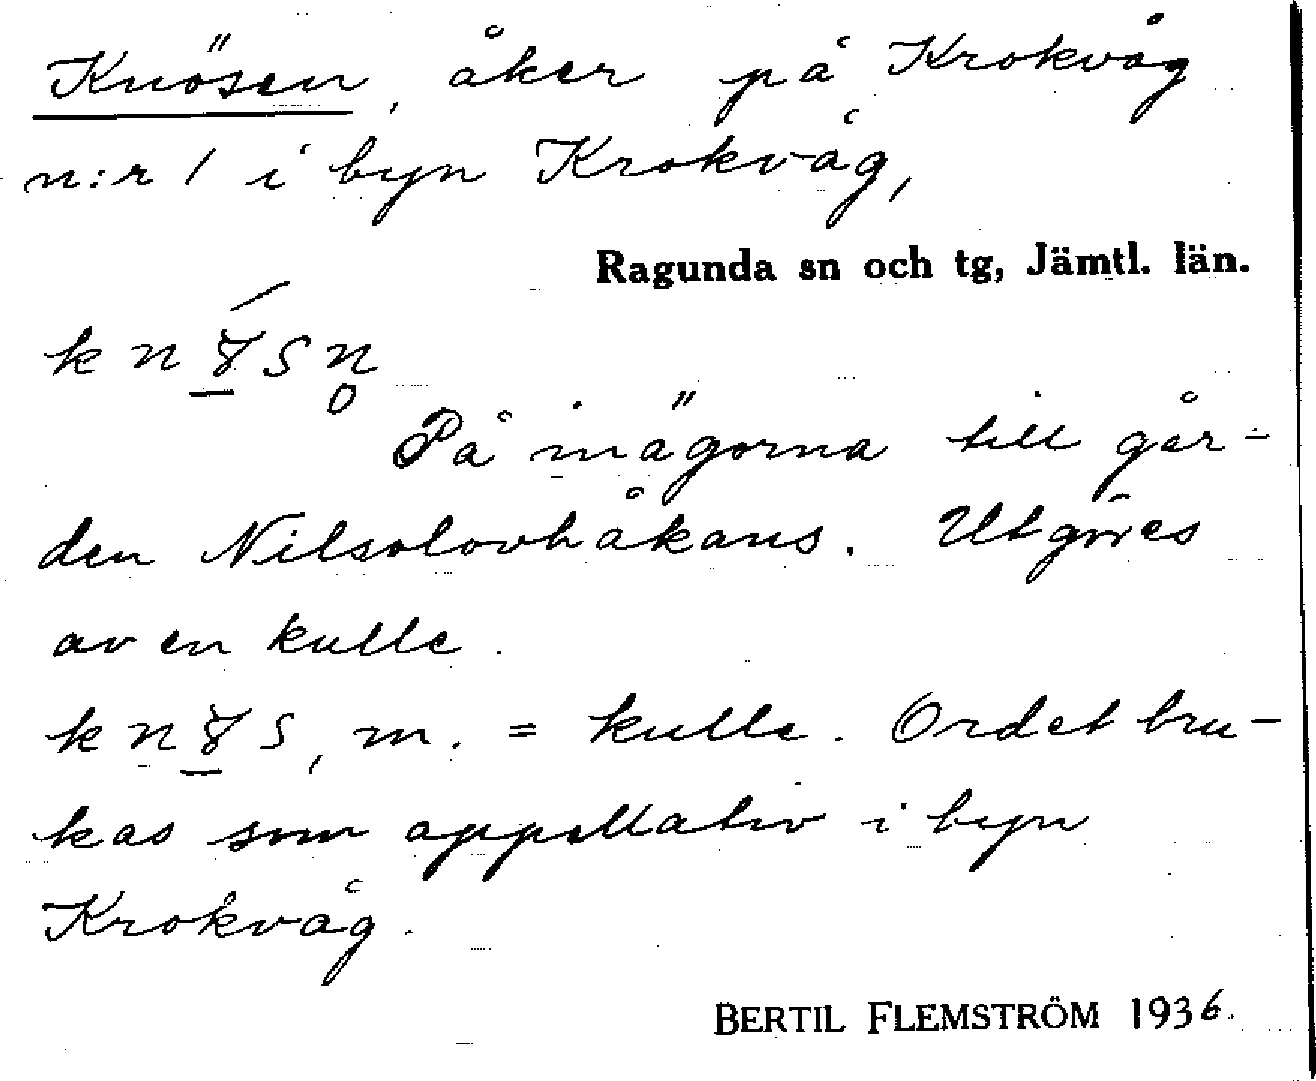 Knösen, åker på Krokvåg
n:r 1 i byn Krokvåg,
Ragunda sn och tg, Jämtl. län.
På inägorna till går-
den Nilsolovhåkans. Utgöres
av en kulle.
m. = kulle. Ordet bru-
kas som appellativ i byn
Krokvåg.
BERTIL FLEMSTRÖM 1936.